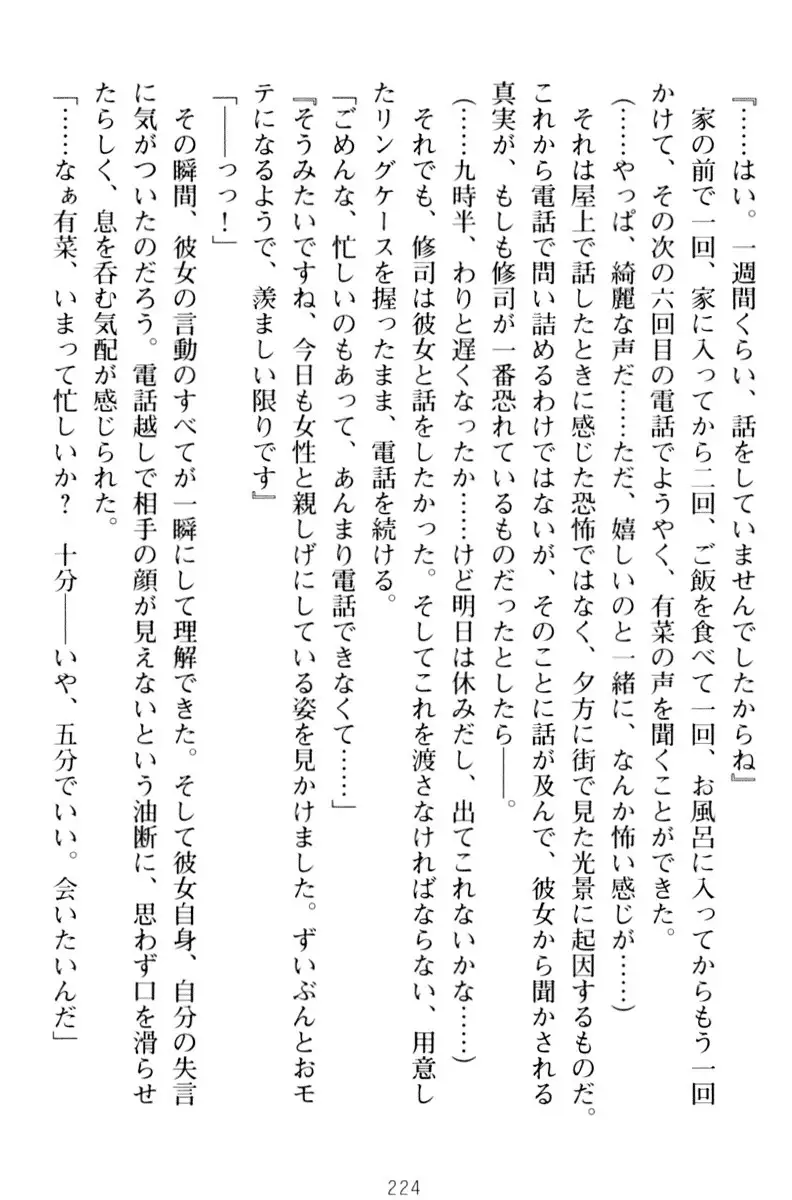 『……はい。一週間くらい、話をしていませんでしたからね』
　家の前で一回、家に入ってから二回、ご飯を食べて一回、お風呂に入ってからもう一回
かけて、その次の六回目の電話でようやく、有菜の声を聞くことができた。
（……やっぱ、綺麗な声だ……ただ、嬉しいのと一緒に、なんか怖い感じが……）
　それは屋上で話したときに感じた恐怖ではなく、夕方に街で見た光景に起因するものだ。
これから電話で問い詰めるわけではないが、そのことに話が及んで、彼女から聞かされる
真実が、もしも修司が一番恐れているものだったとしたら――。
（……九時半、わりと遅くなったか……けど明日は休みだし、出てこれないかな……）
　それでも、修司は彼女と話をしたかった。そしてこれを渡さなければならない、用意し
たリングケースを握ったまま、電話を続ける。
「ごめんな、忙しいのもあって、あんまり電話できなくて……」
『そうみたいですね、今日も女性と親しげにしている姿を見かけました。ずいぶんとおモ
テになるようで、羨ましい限りです』
「――っっ！」
　その瞬間、彼女の言動のすべてが一瞬にして理解できた。そして彼女自身、自分の失言
に気がついたのだろう。電話越しで相手の顔が見えないという油断に、思わず口を滑らせ
たらしく、息を呑む気配が感じられた。
「……なぁ有菜、いまって忙しいか？　十分――いや、五分でいい。会いたいんだ」
224